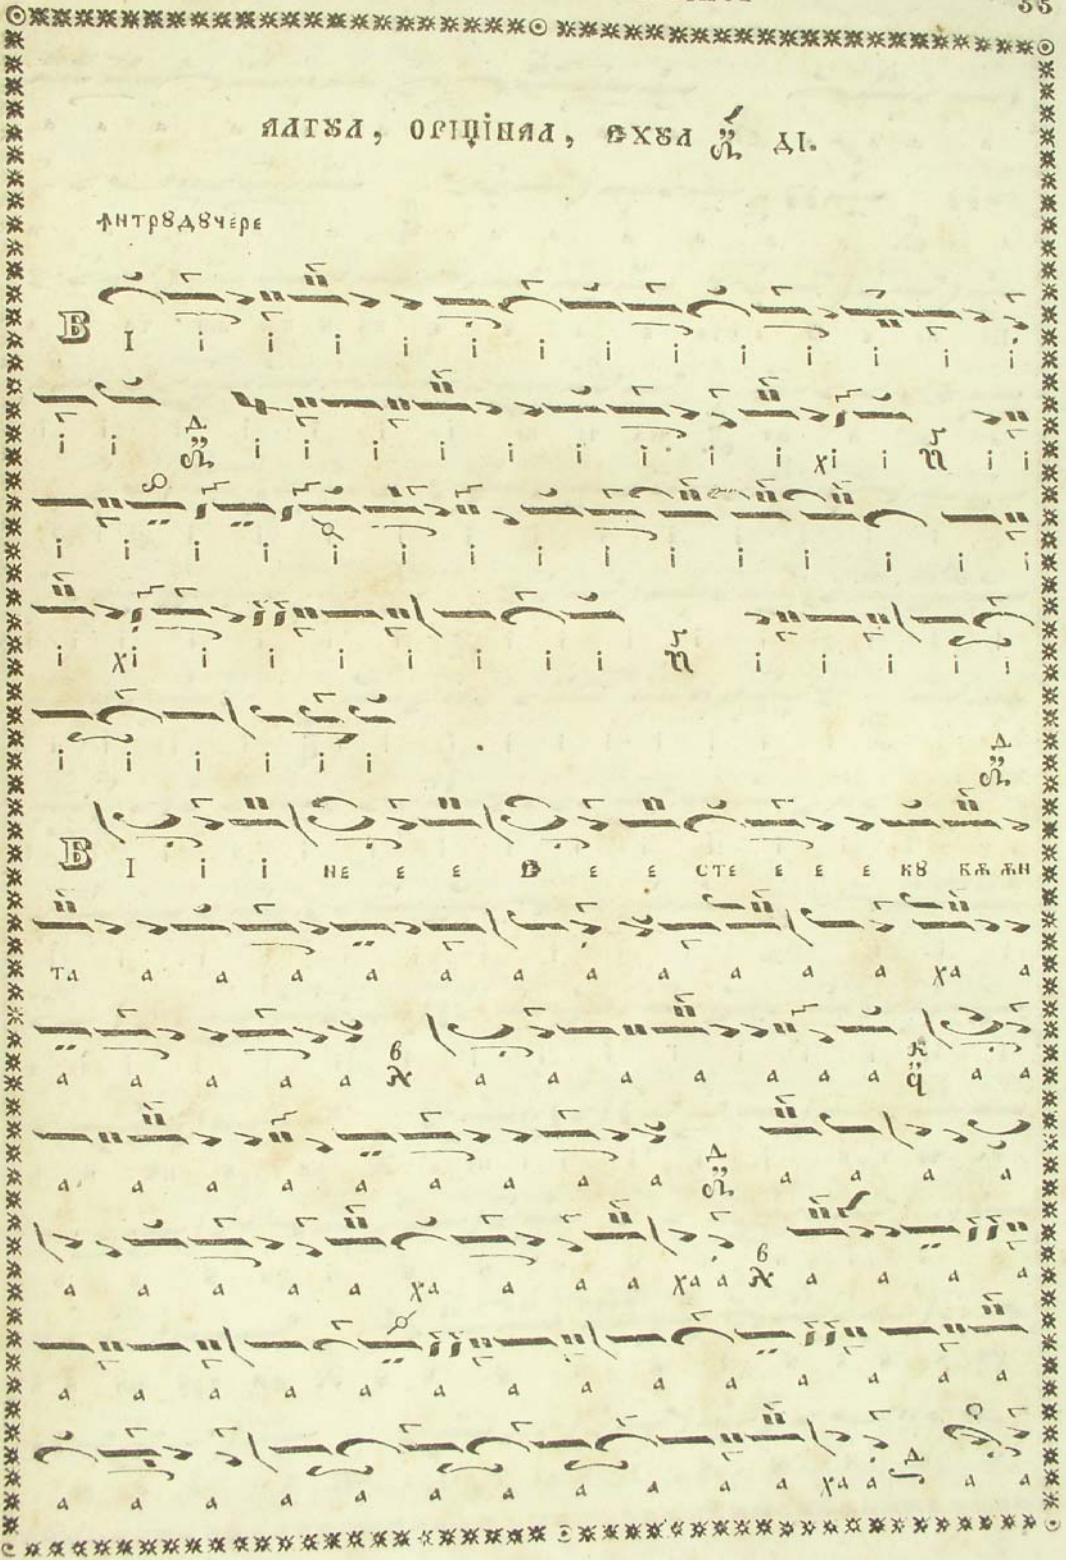 35
АЛТȢЛ, ОРІЏІНАЛ, ЕХȢЛ ДІ.
ꙟнтрȣдȣчере
В І і і і і і і і і і і і і і
і і і і і і і і і і і хі і і і
і і і і і і і і і і і і і і і
і хі і і і і і і і і і і і і
і і і і і і
В І і і не е е Д е е сте е е е кȣ кѫ ѫн
та а а а а а а а а а а а ха а
а а а а а а а а а а а а а а
а а а а а а а а а а а а а
а а а а а ха а а а ха а а а а а
а а а а а а а а а а а а а а
а а а а а а а а а а а ха а а а